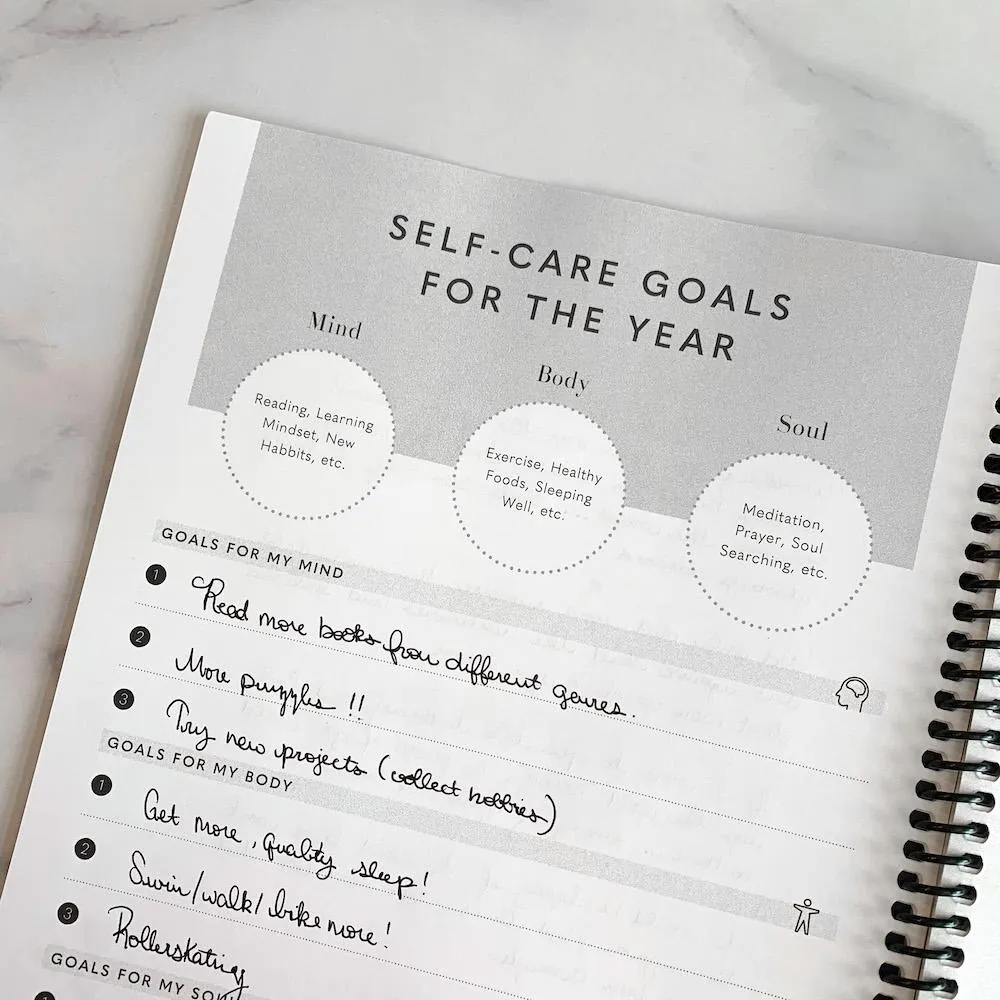 SELF-CARE GOALS
FOR THE YEAR
Mind
Reading, Learning
Mindset, New
Habbits, etc.
Body
Exercise, Healthy
Foods, Sleeping
Well, etc.
Soul
Meditation,
Prayer, Soul
Searching, etc.
GOALS FOR MY MIND
1 Read more books from different genres.
2 More puzzles !!
3 Try new projects (collect hobbies)
GOALS FOR MY BODY
1 Get more, quality sleep!
2 Swim/walk/bike more!
3 Rollerskating
GOALS FOR MY SOUL
1